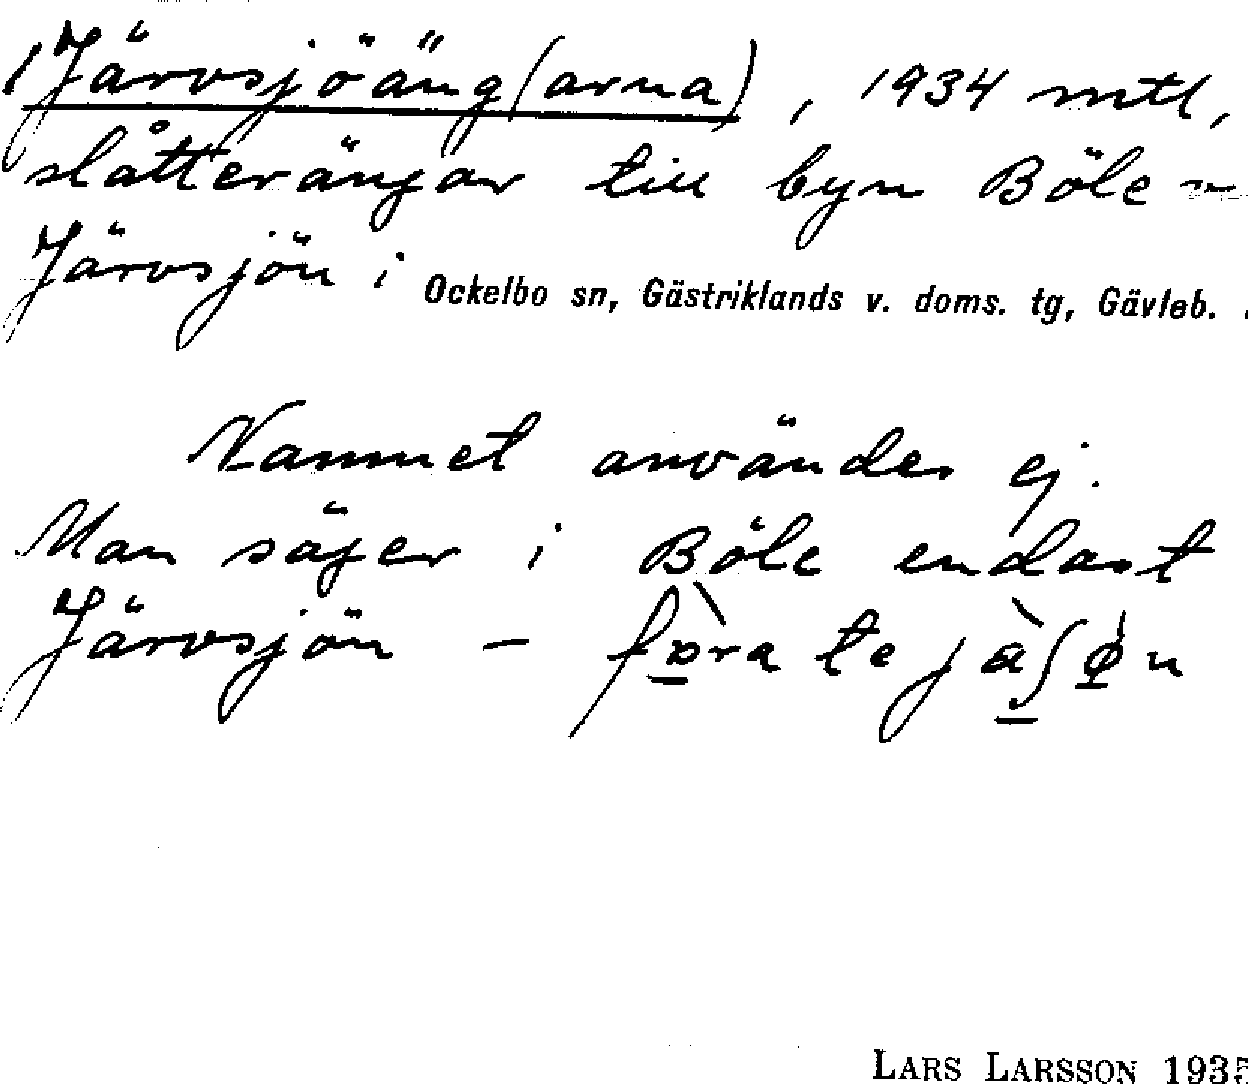 Järvsjöäng(arna), 1934 mtl,
slåtterängar till byn Böle -
Järvsjön i Ockelbo sn, Gästriklands v. doms. tg, Gävleb.
Namnet användes ej.
Man säger i Böle endast
Järvsjön –
LARS LARSSON 1935